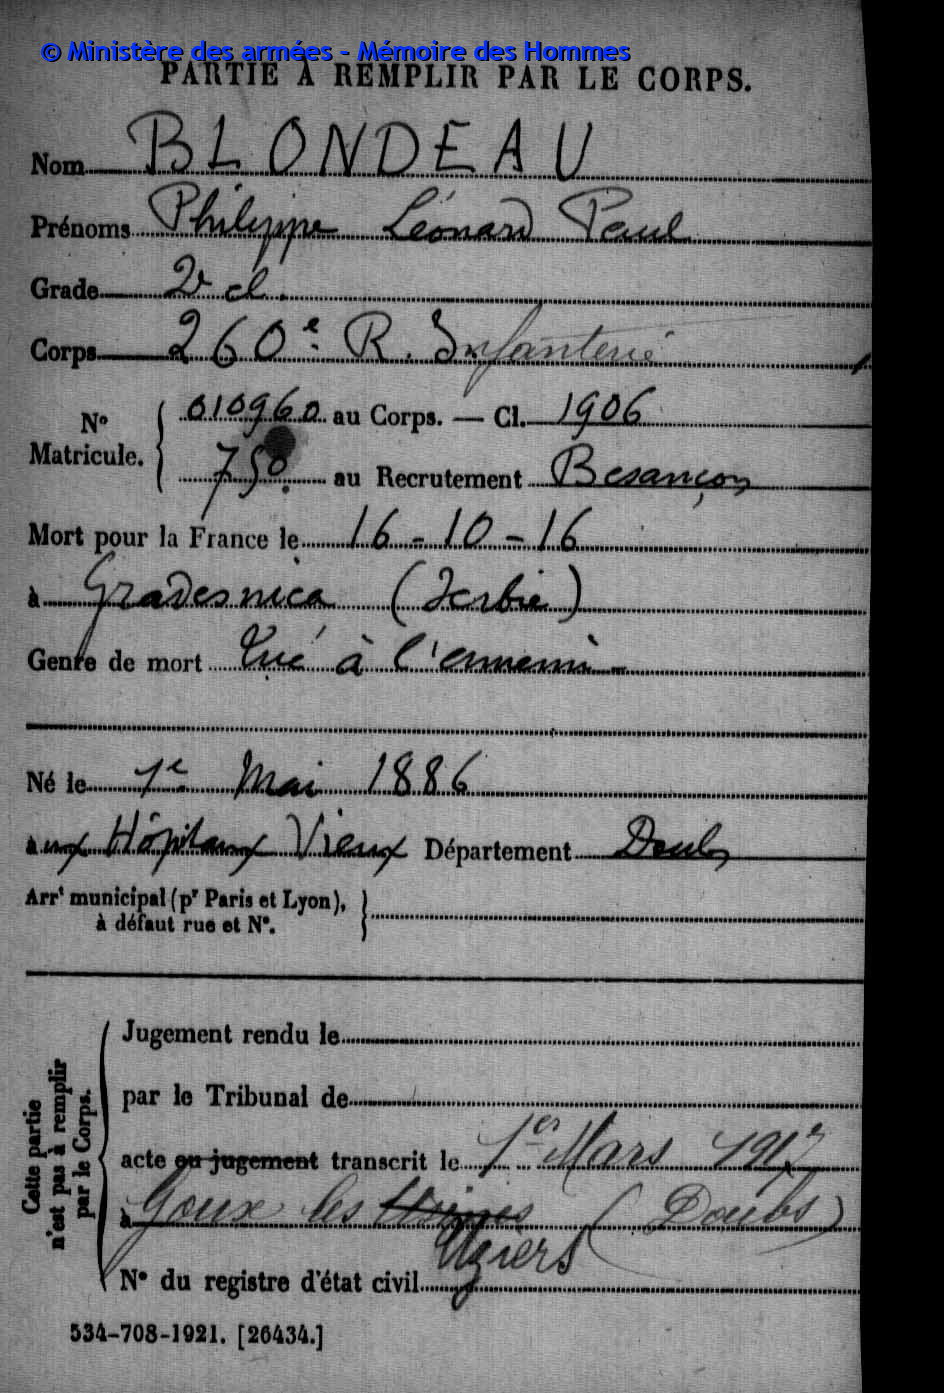 © Ministère des armées - Mémoire des Hommes
PARTIE À REMPLIR PAR LE CORPS.
Nom BLONDEAU
Prénoms Philippe Léonard Paul
Grade 2e cl.
Corps 260e R. Infanterie
No Matricule. { 010960 au Corps. — Cl. 1906
750. au Recrutement Besançon
Mort pour la France le 16 - 10 - 16
à Gradesnica (Serbie)
Genre de mort Tué à l'ennemi -
Né le 1er Mai 1886
aux Hôpitaux Vieux Département Doubs
Arrt municipal (pr Paris et Lyon), }
à défaut rue et No.
Cette partie n'est pas à remplir par le Corps.
Jugement rendu le
par le Tribunal de
acte ou jugement transcrit le 1er Mars 1917
à Goux les Usiers (Doubs)
No du registre d'état civil
534-708-1921. [26434.]